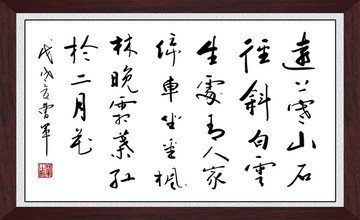 遠上寒山石
径斜白雲
生處有人家
停車坐愛楓
林晚霜葉紅
於二月花
戊戌